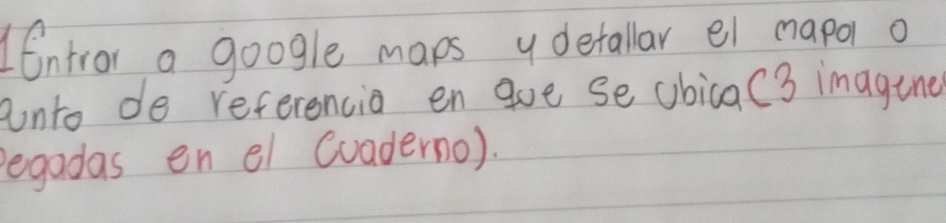 1 Entrar a google maps y detallar el mapa o
unto de referencia en que se ubica (3 imagene
egadas en el Cuaderno).